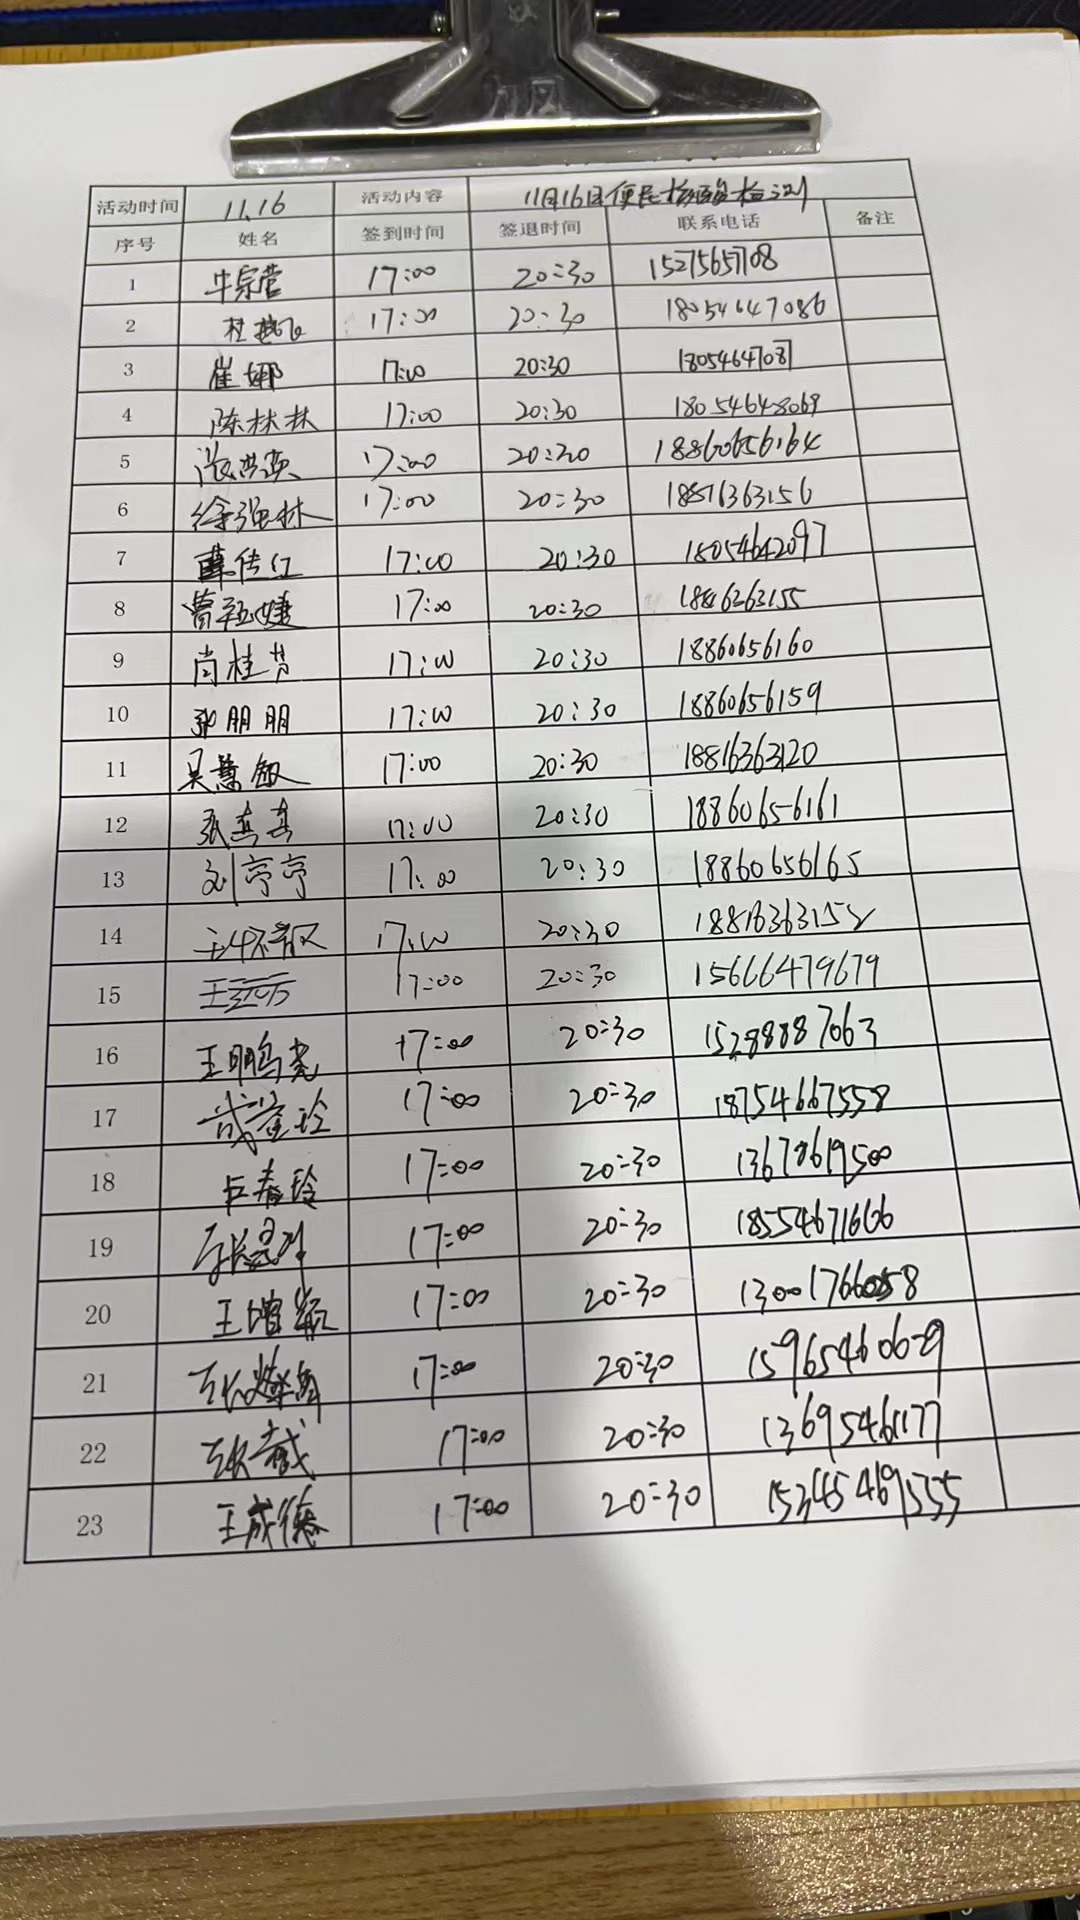 活动时间 11.16 活动内容 11月16日便民核酸检测
序号 姓名 签到时间 签退时间 联系电话 备注
1 牛宗营 17:00 20:30 15275657108
2 杜艳飞 17:00 20:30 18054647086
3 崔娜 17:00 20:30 18054647087
4 陈林林 17:00 20:30 18054648069
5 17:00 20:30 18860656164
6 徐强林 17:00 20:30 18816363156
7 薛传红 17:00 20:30 18054642097
8 曹颖婕 17:00 20:30
9 尚桂芳 17:00 20:30 18860656160
10 张朋朋 17:00 20:30 18860656159
11 吴慧敏 17:00 20:30 18816363120
12 张真真 17:00 20:30 18860656161
13 刘亭亭 17:00 20:30 18860656165
14 17:00 20:30 18816363158
15 王远方 17:00 20:30 15666479679
16 王鹏尧 17:00 20:30 15288887063
17 17:00 20:30 18754667558
18 卢春玲 17:00 20:30 13678619500
19 17:00 20:30 18554671666
20 王增 17:00 20:30
21 17:00 20:30 15965460629
22 17:00 20:30 13695461177
23 王成德 17:00 20:30 15345469555